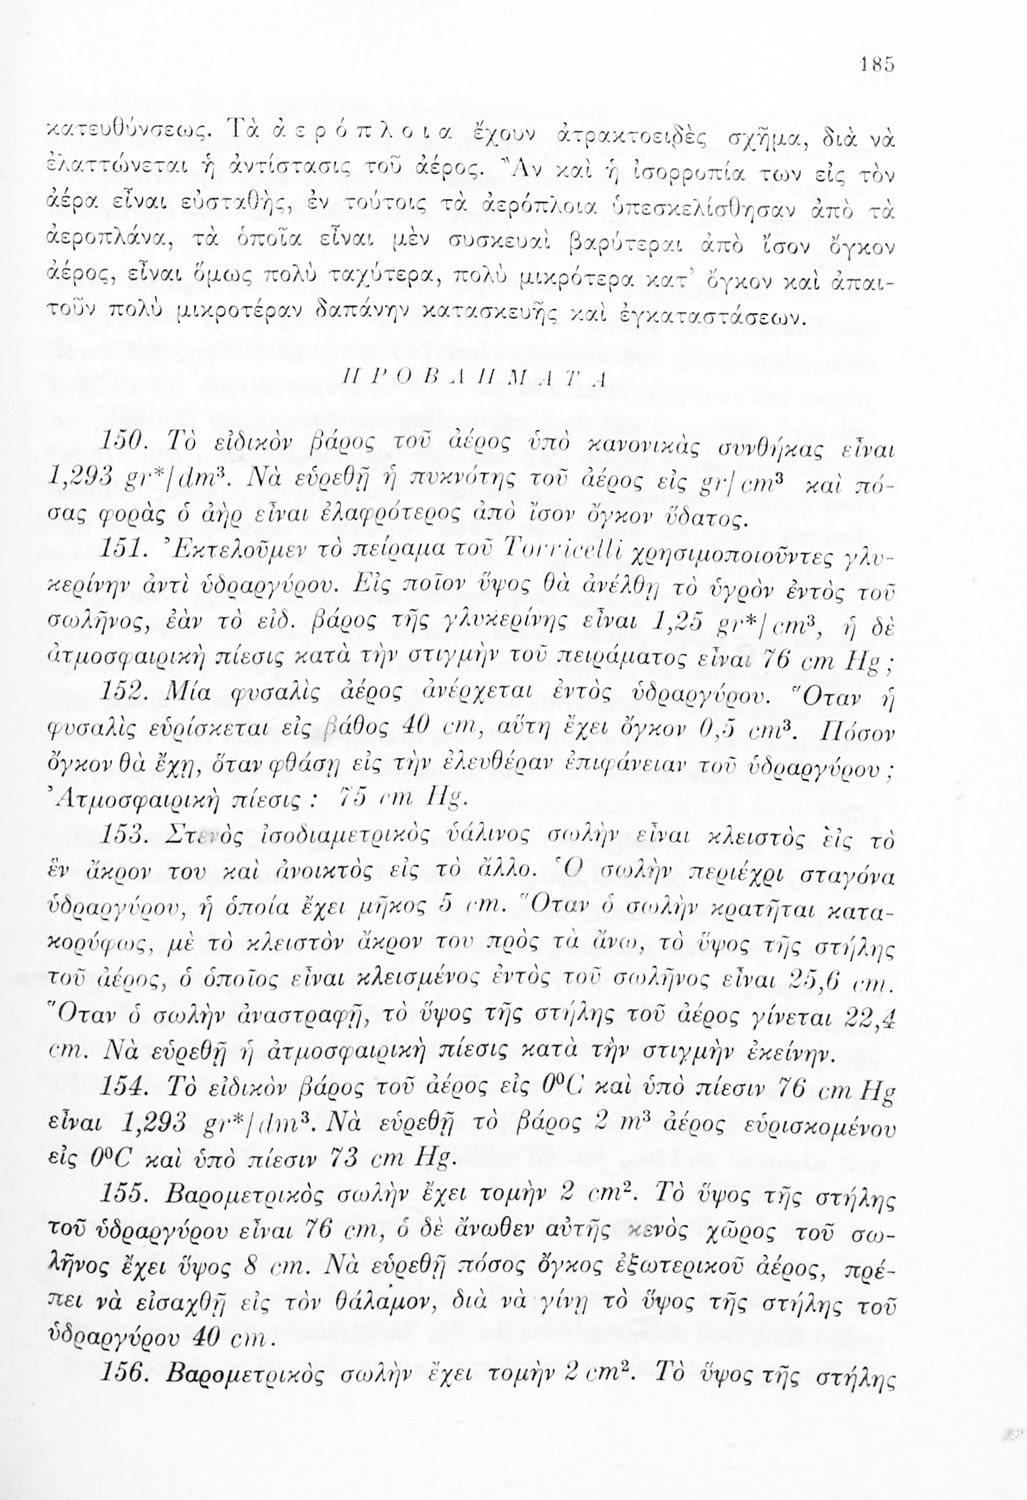 185
κατευθύνσεως. Τὰ ἀ ε ρ ό π λ ο ι α ἔχουν ἀτρακτοειδὲς σχῆμα, διὰ νὰ
ἐλαττώνεται ἡ ἀντίστασις τοῦ ἀέρος. Ἂν καὶ ἡ ἰσορροπία των εἰς τὸν
ἀέρα εἶναι εὐσταθής, ἐν τούτοις τὰ ἀερόπλοια ὑπεσκελίσθησαν ἀπὸ τὰ
ἀεροπλάνα, τὰ ὁποῖα εἶναι μὲν συσκευαὶ βαρύτεραι ἀπὸ ἴσον ὄγκον
ἀέρος, εἶναι ὅμως πολὺ ταχύτερα, πολὺ μικρότερα κατ᾿ ὄγκον καὶ ἀπαι-
τοῦν πολὺ μικροτέραν δαπάνην κατασκευῆς καὶ ἐγκαταστάσεων.
Π Ρ Ο Β Λ Η Μ Α Τ Α
150. Τὸ εἰδικὸν βάρος τοῦ ἀέρος ὑπὸ κανονικὰς συνθήκας εἶναι
1,293 gr*/dm³. Νὰ εὑρεθῇ ἡ πυκνότης τοῦ ἀέρος εἰς gr/cm³ καὶ πό-
σας φορὰς ὁ ἀὴρ εἶναι ἐλαφρότερος ἀπὸ ἴσον ὄγκον ὕδατος.
151. Ἐκτελοῦμεν τὸ πείραμα τοῦ Torricelli χρησιμοποιοῦντες γλυ-
κερίνην ἀντὶ ὑδραργύρου. Εἰς ποῖον ὕψος θὰ ἀνέλθῃ τὸ ὑγρὸν ἐντὸς τοῦ
σωλῆνος, ἐὰν τὸ εἰδ. βάρος τῆς γλυκερίνης εἶναι 1,25 gr*/cm³, ἡ δὲ
ἀτμοσφαιρικὴ πίεσις κατὰ τὴν στιγμὴν τοῦ πειράματος εἶναι 76 cm Hg ;
152. Μία φυσαλὶς ἀέρος ἀνέρχεται ἐντὸς ὑδραργύρου. Ὅταν ἡ
φυσαλὶς εὑρίσκεται εἰς βάθος 40 cm, αὕτη ἔχει ὄγκον 0,5 cm³. Πόσον
ὄγκον θὰ ἔχῃ, ὅταν φθάσῃ εἰς τὴν ἐλευθέραν ἐπιφάνειαν τοῦ ὑδραργύρου ;
Ἀτμοσφαιρικὴ πίεσις : 75 cm Hg.
153. Στενὸς ἰσοδιαμετρικὸς ὑάλινος σωλὴν εἶναι κλειστὸς εἰς τὸ
ἓν ἄκρον του καὶ ἀνοικτὸς εἰς τὸ ἄλλο. Ὁ σωλὴν περιέχρι σταγόνα
ὑδραργύρου, ἡ ὁποία ἔχει μῆκος 5 cm. Ὅταν ὁ σωλὴν κρατῆται κατα-
κορύφως, μὲ τὸ κλειστὸν ἄκρον του πρὸς τὰ ἄνω, τὸ ὕψος τῆς στήλης
τοῦ ἀέρος, ὁ ὁποῖος εἶναι κλεισμένος ἐντὸς τοῦ σωλῆνος εἶναι 25,6 cm.
Ὅταν ὁ σωλὴν ἀναστραφῇ, τὸ ὕψος τῆς στήλης τοῦ ἀέρος γίνεται 22,4
cm. Νὰ εὑρεθῇ ἡ ἀτμοσφαιρικὴ πίεσις κατὰ τὴν στιγμὴν ἐκείνην.
154. Τὸ εἰδικὸν βάρος τοῦ ἀέρος εἰς 0⁰C καὶ ὑπὸ πίεσιν 76 cm Hg
εἶναι 1,293 gr*/dm³. Νὰ εὑρεθῇ τὸ βάρος 2 m³ ἀέρος εὑρισκομένου
εἰς 0⁰C καὶ ὑπὸ πίεσιν 73 cm Hg.
155. Βαρομετρικὸς σωλὴν ἔχει τομὴν 2 cm². Τὸ ὕψος τῆς στήλης
τοῦ ὑδραργύρου εἶναι 76 cm, ὁ δὲ ἄνωθεν αὐτῆς κενὸς χῶρος τοῦ σω-
λῆνος ἔχει ὕψος 8 cm. Νὰ εὑρεθῇ πόσος ὄγκος ἐξωτερικοῦ ἀέρος, πρέ-
πει νὰ εἰσαχθῇ εἰς τὸν θάλαμον, διὰ νὰ γίνῃ τὸ ὕψος τῆς στήλης τοῦ
ὑδραργύρου 40 cm.
156. Βαρομετρικὸς σωλὴν ἔχει τομὴν 2 cm². Τὸ ὕψος τῆς στήλης